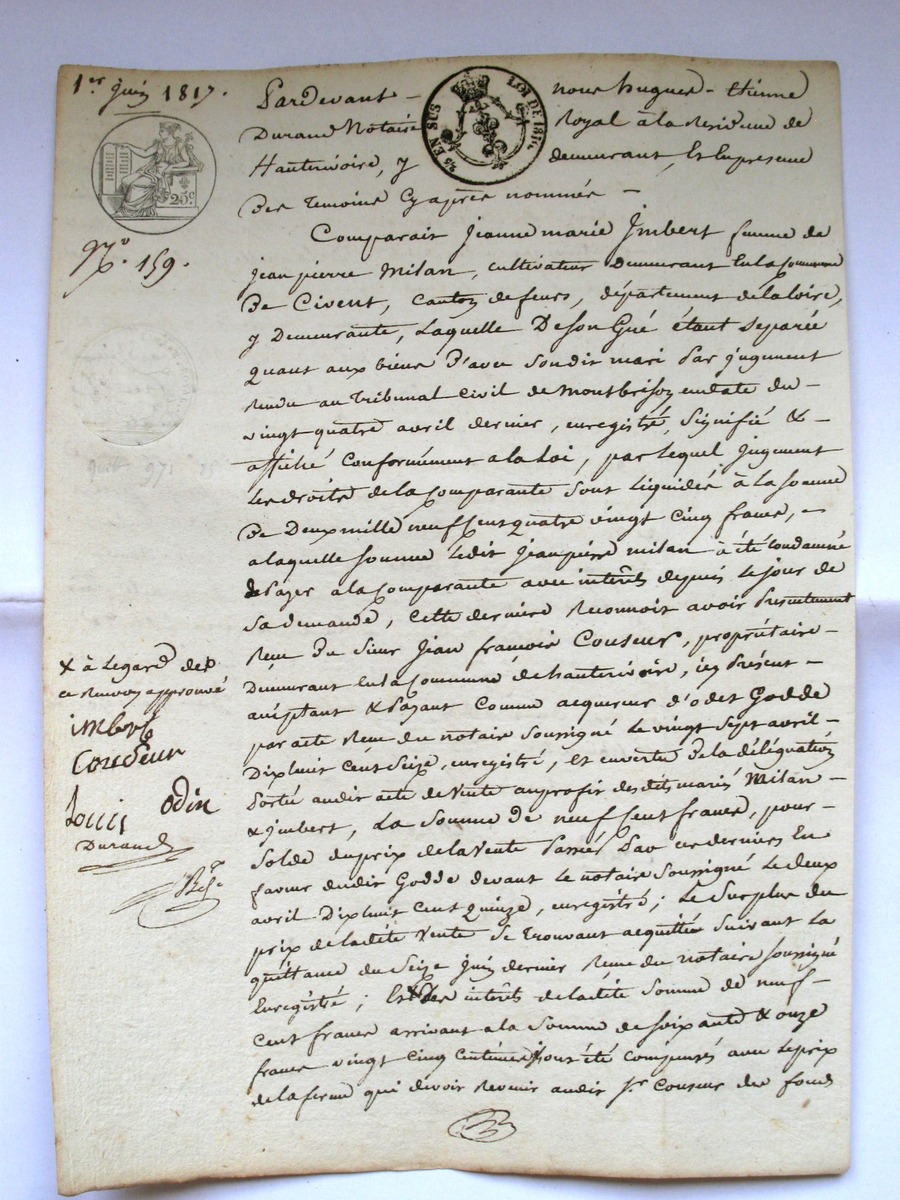 1er juin 1817.
25 c
No 159.
25 EN SUS LOI DE 1816
Pardevant nous hugues-Etienne
Durand Notaire Royal à la Residence de
Hauterivoire, y demeurant, et En presence
Des temoins Cy après nommés
Comparait Jeanne marie Imbert femme de
jean pierre Milan, cultivateur demeurant En la Commune
De Civent, canton de feurs, département de la loire,
y Demeurante, Laquelle De son Gré étant separée
quant aux biens D'avec Son dit mari par jugement
rendu au Tribunal Civil de Montbrison en date du
vingt quatre avril dernier, enregistré, signifié &
affiché Conformément a la Loi, par lequel jugement
Les droits de la Comparante sont liquidés à la Somme
De Deux mille neuf cent quatre vingt cinq francs,
a laquelle somme ledit Jean pierre milan à été condamné
de Payer a la Comparante avec intérêts depuis le jour de
Sa demande, Cette dernière Reconnoit avoir Presentement
Reçu Du Sieur Jean françois Couseur, propriétaire
Demeurant En la Commune de hauterivoire, ici Présent
acceptant & Payant Comme acquereur d'odet Godde
par acte Reçu du notaire Soussigné le vingt sept avril
Dix huit Cent Seize, enregistré, et en vertu De la délégation
Portée audit acte de Vente au profit des dits mariés Milan
& jmbert, La Somme De neuf Cent francs, pour
Solde du prix de la vente Passée Par ces derniers En
faveur dudit Godde devant le notaire Soussigné Le deux
avril Dix huit Cent quinze, enregistré; Le Surplus du
prix de ladite Vente Se trouvant acquitté suivant la
quittance du Seize juin dernier Reçue du notaire Soussigné
Enregistré; Et les intérêts de ladite Somme de neuf
Cent francs arrivant a la Somme de soixante & onze
francs vingt cinq centimes ont été compensés avec le prix
de la ferme qui devoit Revenir audit Sr Couseur des fonds
X à Legard de
ce Renvoi approuvé
imbert
Couseur
Louis Odin
Durand